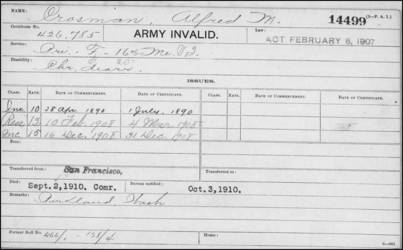 NAME: Crosman, Alfred M. 14499
CERTIFICATE No. 426,785 ARMY INVALID. Law: ACT FEBRUARY 6, 1907
Service: Pvt. F. 16 Me. Inf.
Disability:
ISSUES.
CLASS. RATE. DATE OF COMMENCEMENT. DATE OF CERTIFICATE. CLASS. RATE. DATE OF COMMENCEMENT. DATE OF CERTIFICATE.
Inc 10 28 Apr. 1890 1 July, 1890
12 10 Feb 1908 4 Mar 1908
Inc 15 16 Dec. 1908 31 Dec. 1908
Transferred from San Francisco, Transferred to
Died: Sept.2,1910. Comr. Bureau notified: Oct.3,1910.
Remarks: Wash
Former Roll No. Home: